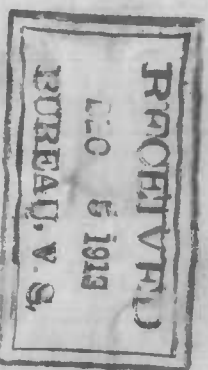 RECEIVED
DEC 8 1913
BUREAU, V. S.